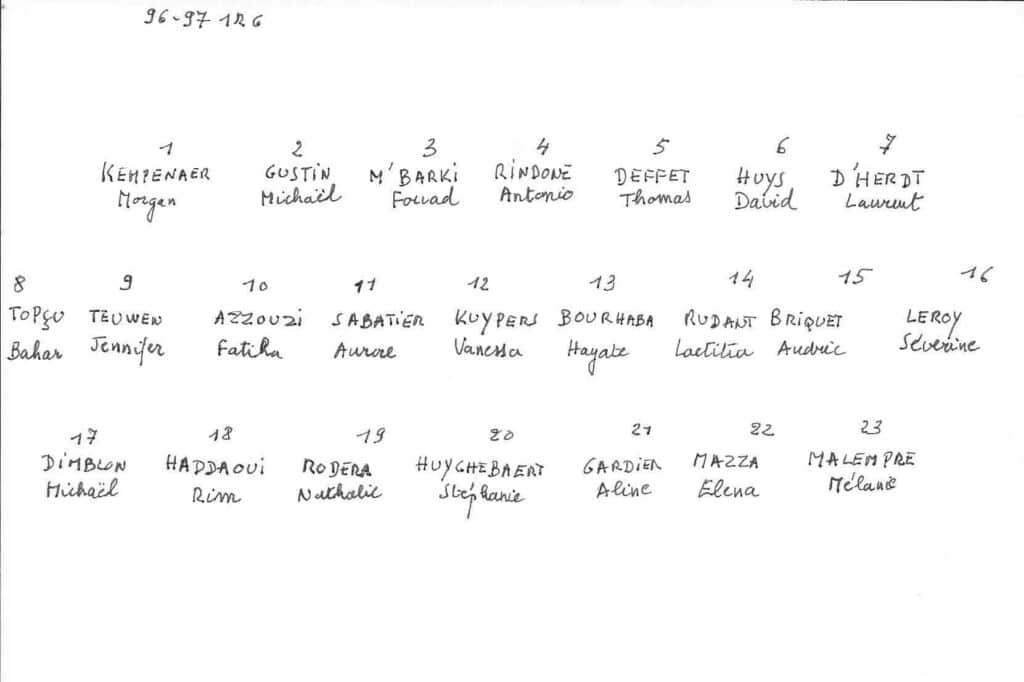 96-97 1R6
1 2 3 4 5 6 7
KEMPENAER GUSTIN M'BARKI RINDONE DEFFET HUYS D'HERDT
Morgan Michaël Fouad Antonio Thomas David Laurent
8 9 10 11 12 13 14 15 16
TOPÇU TEUWEN AZZOUZI SABATIER KUYPERS BOURHABA RUDANT BRIQUET LEROY
Bahar Jennifer Fatiha Aurore Vanessa Hayate Laetitia Audric Séverine
17 18 19 20 21 22 23
DIMBLON HADDAOUI RODERA HUYGHEBAERT GARDIER MAZZA MALEMPRE
Michaël Rim Nathalie Stéphanie Aline Elena Mélanie